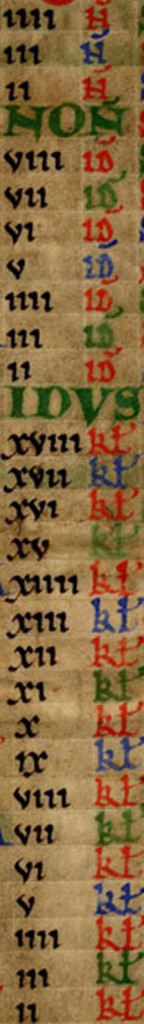 iiii N̄
iii N̄
ii N̄
NON
viii ID̄
vii ID̄
vi ID̄
v ID̄
iiii ID̄
iii ID̄
ii ID̄
IDVS
xviii kł
xvii kł
xvi kł
xv kł
xiiii kł
xiii kł
xii kł
xi kł
x kł
ix kł
viii kł
vii kł
vi kł
v kł
iiii kł
iii kł
ii kł